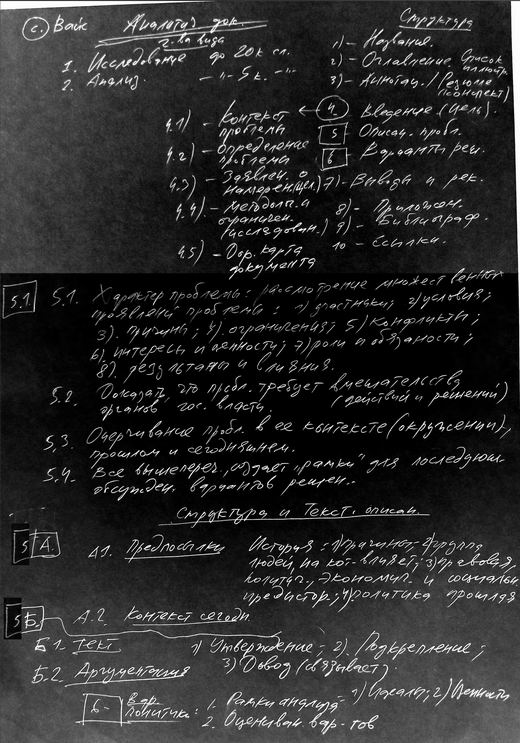 с. Вайс Аналитич. док.
2-ва вида
1. Исследование до 20к сл.
2. Анализ. — " - 5 к. - " -
Структура
1) — Название.
2) — Оглавление, список
3) — Аннотац. / Резюме
(конспект)
4. Введение (цель).
5 Описан. пробл.
6 — Варианты реш.
7) — Выводы и рек.
8) — Приложен.
9) — Библиограф.
10 — Ссылки.
4.1) — Контекст
проблемы
4.2) — Определение
проблемы
4.3) — Заявлен. о
намерен. (цел.)
4.4) — Методолог. и
ограничен.
(исследован.)
4.5) — Дор. карта
документа
5.1 5.1. Характер проблемы: рассмотрение множественных
проявлений проблемы: 1) участники; 2) условия;
3). причины; 4). ограничения; 5) конфликты;
6). интересы и ценности; 7) роли и обязаности;
8). результаты и влияния.
5.2. Доказать, что пробл. требует вмешательства
органов гос. власти, (действий и решений)
5.3. Очерчивание пробл. в ее контексте (окружении),
прошлом и сегодняшнем.
5.4. Все вышепереч. создает "рамки" для последующ.
обсужден. вариантов решен..
Структура и Текст. описан.
5 А. А1. Предпосылки История: 1) причины; 2) группа
людей, на кот. влияет; 3) правовая,
политич., экономич. и социальн.
предистор.; 4) политика прошлая
5 Б. А.2. Контекст сегодн.
Б.1. Текст 1) Утверждение; 2). Подкрепление;
3) Довод (связывает).
Б.2. Аргументация
6- Вар. политики: 1. Рамки анализа — 1) Идеалы; 2) Ценности
2. Оцениван. вар-тов